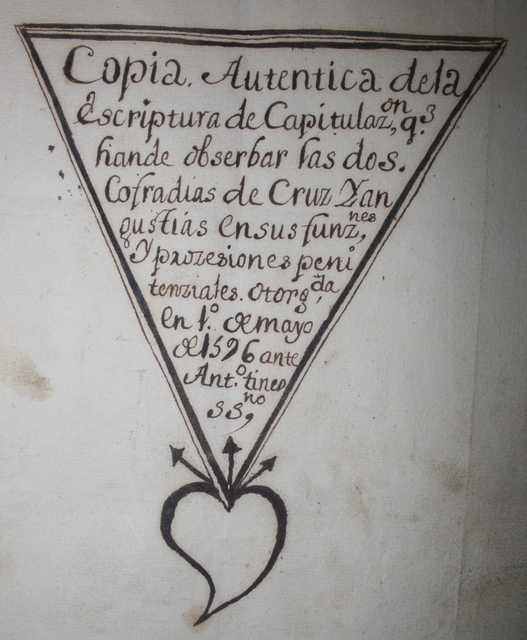 Copia. Autentica dela
Escriptura de Capitulazon, q.s
hande obserbar las dos.
Cofradias de Cruz Yan
gustias en sus funznes,
y prozesiones peni
tenziales. otorgda,
en 1.o de mayo
de 1596 ante
Ant.o tineo
ssno,